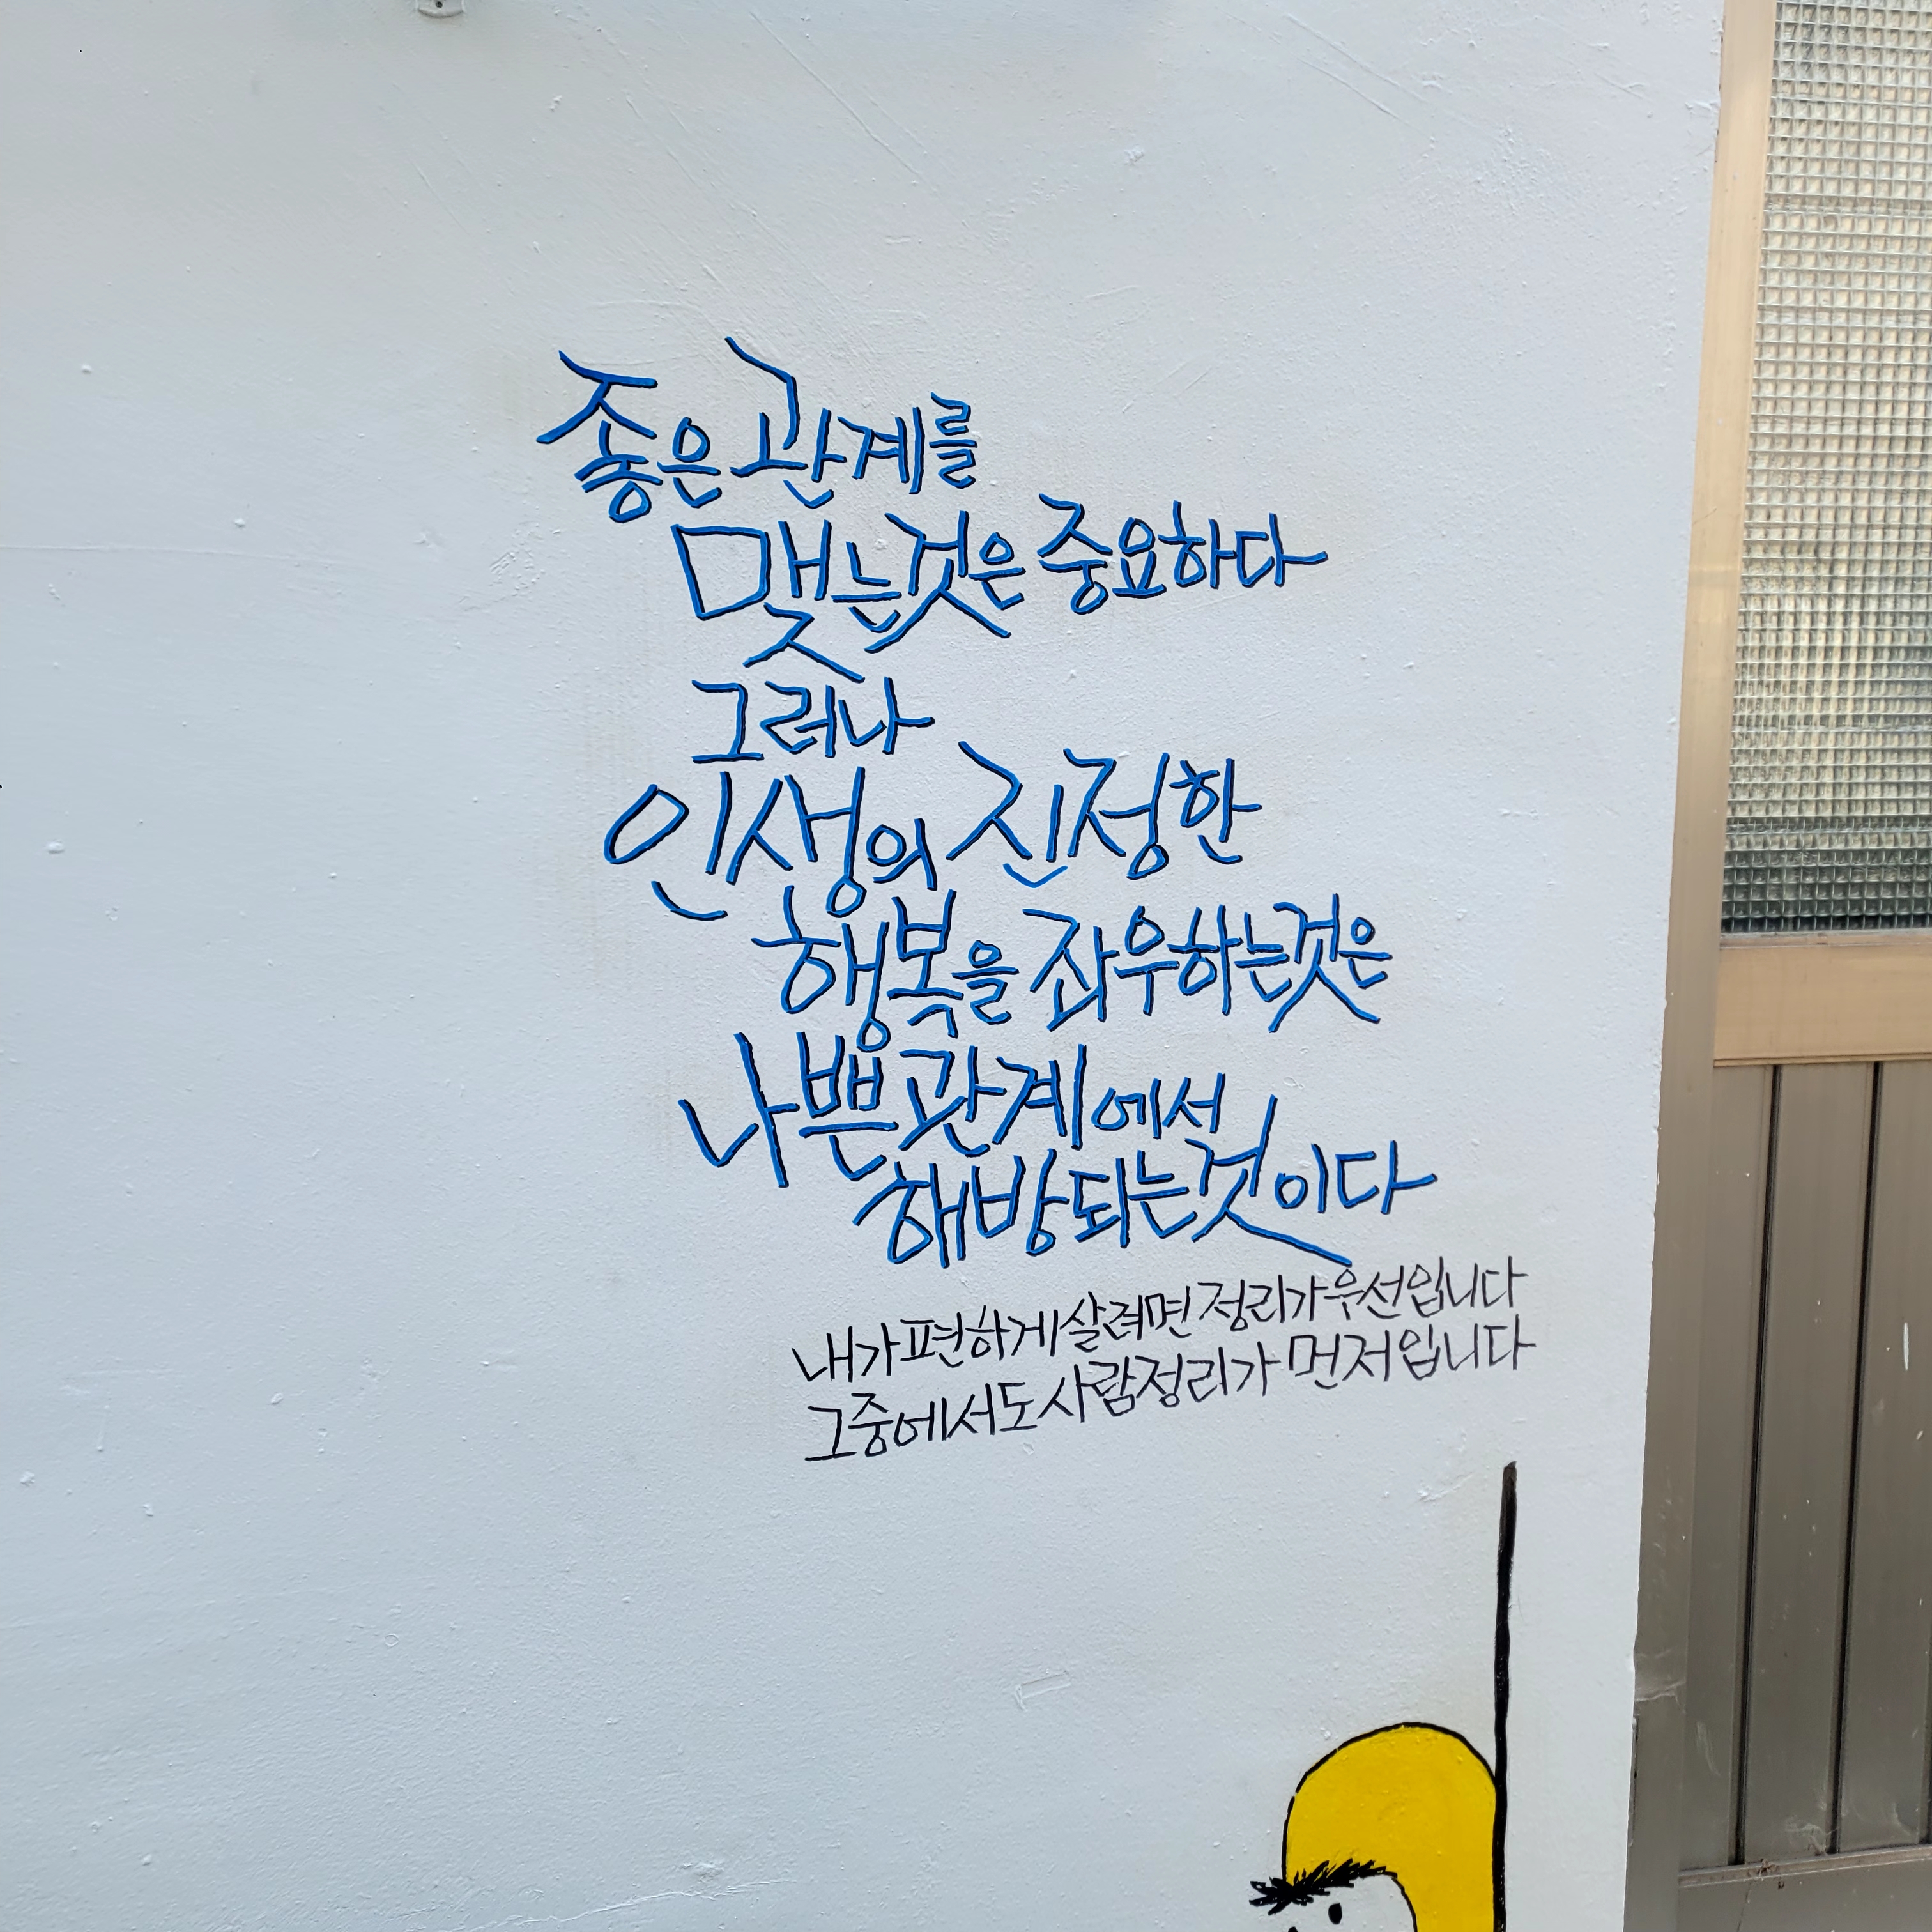 좋은 관계를
맺는것은 중요하다
그러나
인생의 진정한
행복을 좌우하는것은
나쁜관계에서
해방되는것이다
내가편하게살려면 정리가우선입니다
그중에서도사람정리가 먼저입니다